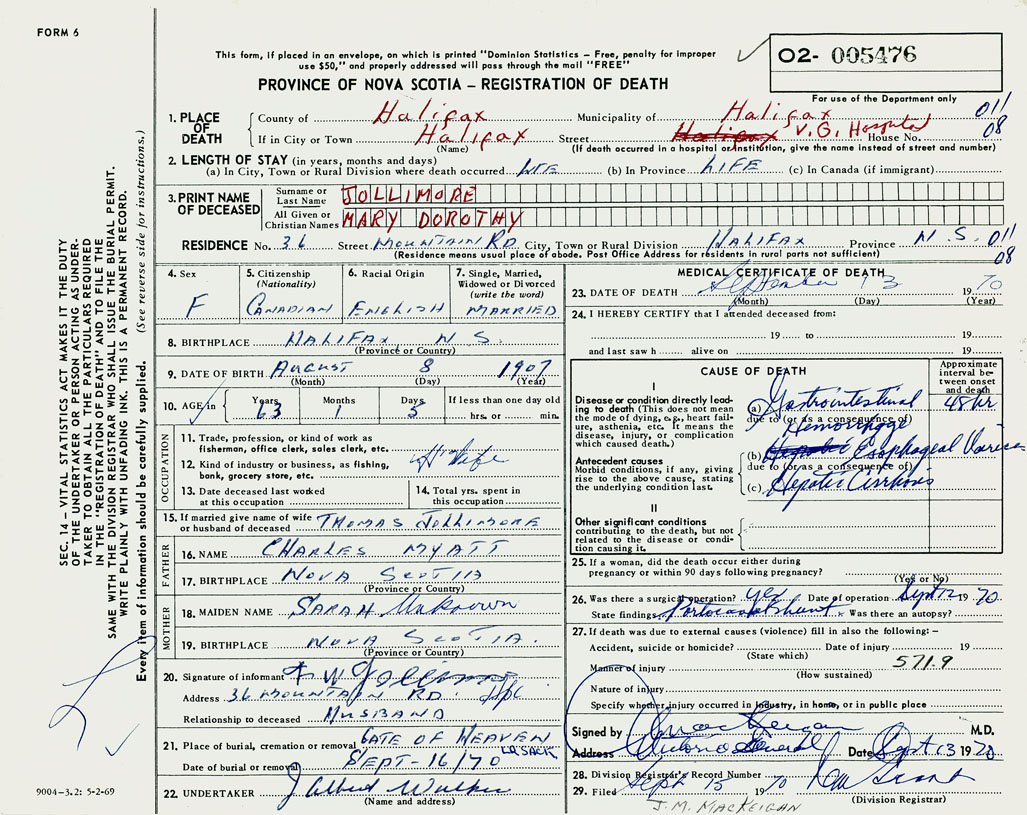 FORM 6
This form, if placed in an envelope, on which is printed "Dominion Statistics – Free, penalty for improper
use $50," and properly addressed will pass through the mail "FREE"
PROVINCE OF NOVA SCOTIA – REGISTRATION OF DEATH
O2- 005476
For use of the Department only
1. PLACE OF DEATH County of Halifax Municipality of Halifax 011
If in City or Town Halifax Street V.G. Hospital House No. 08
(Name) (If death occurred in a hospital or institution, give the name instead of street and number)
2. LENGTH OF STAY (in years, months and days)
(a) In City, Town or Rural Division where death occurred LIFE (b) In Province LIFE (c) In Canada (if immigrant)
3. PRINT NAME OF DECEASED Surname or Last Name JOLLIMORE
All Given or Christian Names MARY DOROTHY
RESIDENCE No. 36 Street MOUNTAIN RD. City, Town or Rural Division HALIFAX Province N.S. 011
(Residence means usual place of abode. Post Office Address for residents in rural parts not sufficient) 08
4. Sex F
5. Citizenship (Nationality) CANADIAN
6. Racial Origin ENGLISH
7. Single, Married, Widowed or Divorced (write the word) MARRIED
8. BIRTHPLACE HALIFAX N S.
(Province or Country)
9. DATE OF BIRTH AUGUST 8 1907
(Month) (Day) (Year)
10. AGE in Years 63 Months 1 Days 5 If less than one day old
hrs. or min.
OCCUPATION
11. Trade, profession, or kind of work as fisherman, office clerk, sales clerk, etc.
H'wife
12. Kind of industry or business, as fishing, bank, grocery store, etc.
13. Date deceased last worked at this occupation
14. Total yrs. spent in this occupation
15. If married give name of wife or husband of deceased THOMAS JOLLIMORE
FATHER
16. NAME CHARLES MYATT
17. BIRTHPLACE NOVA SCOTIA
(Province or Country)
MOTHER
18. MAIDEN NAME SARAH Unknown
19. BIRTHPLACE NOVA SCOTIA.
(Province or Country)
20. Signature of informant
Address 36 MOUNTAIN RD. Hfx
Relationship to deceased HUSBAND
21. Place of burial, cremation or removal GATE OF HEAVEN
LR SACK
Date of burial or removal SEPT-16/70
22. UNDERTAKER J Albert Walker
(Name and address)
MEDICAL CERTIFICATE OF DEATH
23. DATE OF DEATH September 13 1970
(Month) (Day) (Year)
24. I HEREBY CERTIFY that I attended deceased from:
19 to 19
and last saw h alive on 19
CAUSE OF DEATH
Approximate interval between onset and death
I
Disease or condition directly leading to death (This does not mean the mode of dying, e.g., heart failure, asthenia, etc. It means the disease, injury, or complication which caused death.)
(a) Gastrointestinal 48 hr
due to (or as a consequence of)
Hemorrhage
Antecedent causes
Morbid conditions, if any, giving rise to the above cause, stating the underlying condition last.
(b) Esophageal Varices
due to (or as a consequence of)
(c) Hepatic Cirrhosis
II
Other significant conditions
contributing to the death, but not related to the disease or condition causing it.
25. If a woman, did the death occur either during pregnancy or within 90 days following pregnancy?
(Yes or No)
26. Was there a surgical operation? yes Date of operation Sept 12 1970
State findings Portocaval shunt Was there an autopsy?
27. If death was due to external causes (violence) fill in also the following: –
Accident, suicide or homicide? Date of injury 19
(State which)
Manner of injury 571.9
(How sustained)
Nature of injury
Specify whether injury occurred in industry, in home, or in public place
Signed by M.D.
Address Date Sept 13 1970
28. Division Registrar's Record Number
29. Filed Sept 15 1970
(Division Registrar)
J.M. MACKEIGAN
SEC. 14 – VITAL STATISTICS ACT MAKES IT THE DUTY
OF THE UNDERTAKER OR PERSON ACTING AS UNDER-
TAKER TO OBTAIN ALL THE PARTICULARS REQUIRED
IN THE "REGISTRATION OF DEATH" AND TO FILE THE
SAME WITH THE DIVISION REGISTRAR WHO SHALL ISSUE THE BURIAL PERMIT.
WRITE PLAINLY WITH UNFADING INK. THIS IS A PERMANENT RECORD.
Every item of information should be carefully supplied. (See reverse side for instructions.)
9004-3.2: 5-2-69